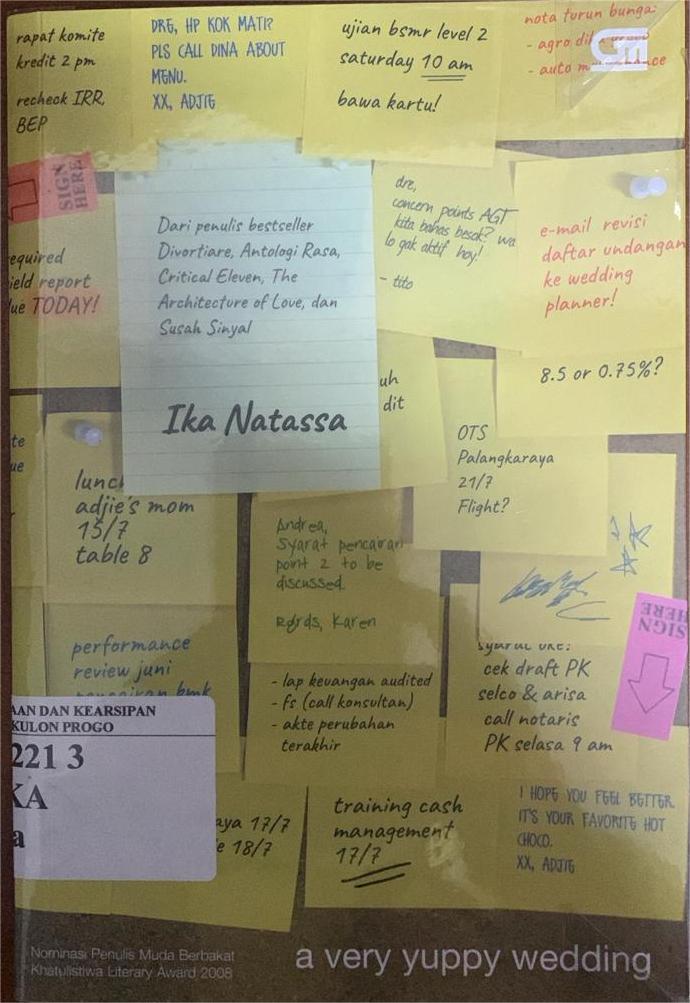 rapat komite
kredit 2 pm
recheck IRR,
BEP
DRE, HP KOK MATI?
PLS CALL DINA ABOUT
MENU.
XX, ADJIE
ujian bsmr level 2
saturday 10 am
bawa kartu!
nota turun bunga:
- agro
- auto
SIGN
HERE
equired
ield report
ue TODAY!
Dari penulis bestseller
Divortiare, Antologi Rasa,
Critical Eleven, The
Architecture of Love, dan
Susah Sinyal
Ika Natassa
dre,
concern points AGT
kita bahas besok? wa
lo gak aktif boy!
- tito
e-mail revisi
daftar undangan
ke wedding
planner!
uh
dit
8.5 or 0.75%?
te
ue
lunch
adjie's mom
15/7
table 8
OTS
Palangkaraya
21/7
Flight?
Andrea,
Syarat pencairan
point 2 to be
discussed.
Rgrds, Karen
performance
review juni
pencairan bmk
- lap keuangan audited
- fs (call konsultan)
- akte perubahan
terakhir
cek draft PK
selco & arisa
call notaris
PK selasa 9 am
SIGN
HERE
AAN DAN KEARSIPAN
KULON PROGO
221 3
KA
a
aya 17/7
e 18/7
training cash
management
17/7
I HOPE YOU FEEL BETTER.
IT'S YOUR FAVORITE HOT
CHOCO.
XX, ADJIE
Nominasi Penulis Muda Berbakat
Khatulistiwa Literary Award 2008
a very yuppy wedding